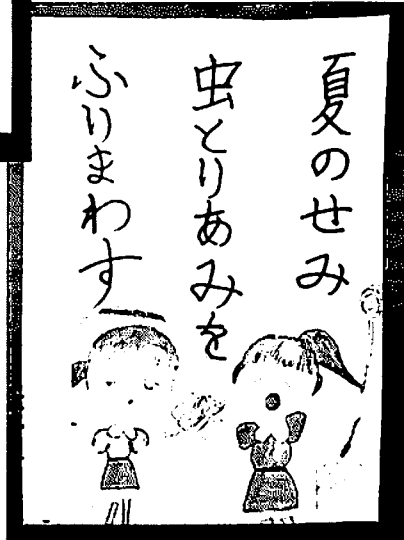 夏のせみ
虫とりあみを
ふりまわす